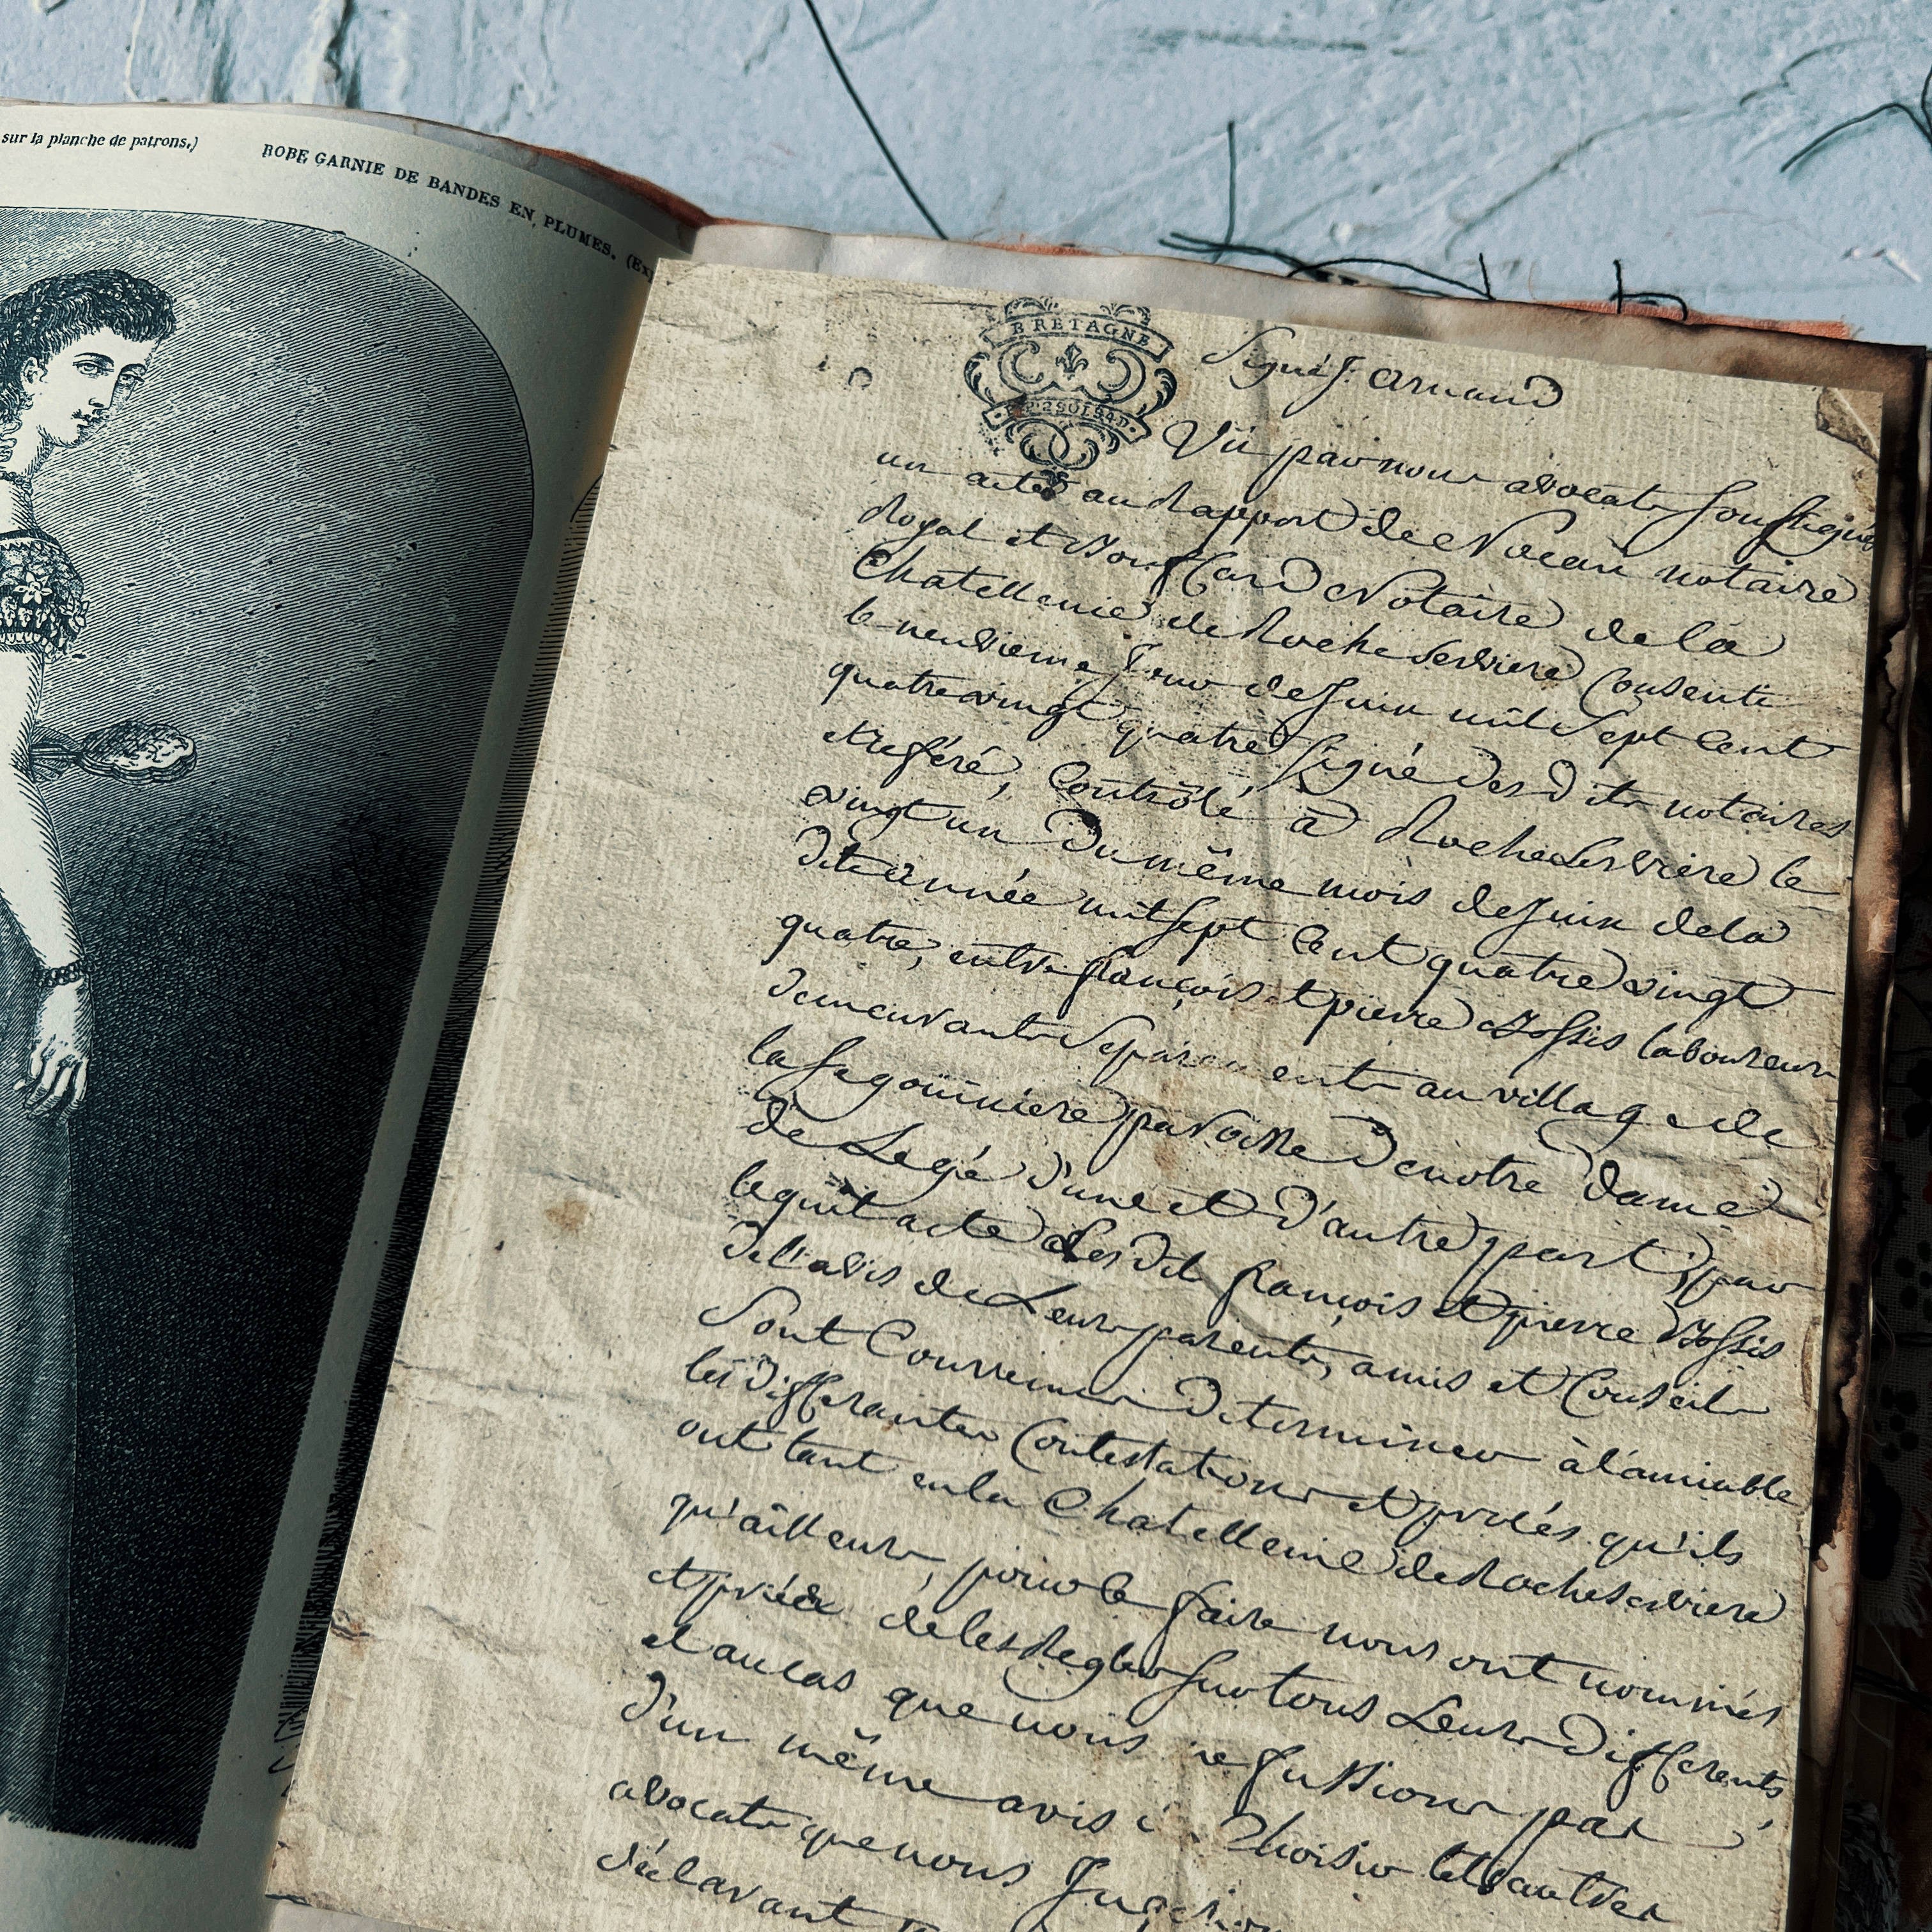 sur la planche de patrons.)
ROBE GARNIE DE BANDES EN PLUMES. (Ex
BRETAGNE
Signé J. Arnaud
Vû par nous avocats soussignés
un acte au Rapport de notaire
Royal et Notaire de la
Chatellenie de Rocheserviere Consenti
le neuvieme Jour de Juin mil Sept Cent
quatre vingt quatre Signé des dits notaires
et referé, Controlé à Rocheserviere le
vingt un du même mois de Juin de la
dite année mil sept Cent quatre vingt
quatre, entre françois et pierre laboureurs
demeurants Separement au village de
la paroisse de notre dame
de Legé d'une et d'autre part, par
lequel acte Les dit françois et pierre
de l'avis de Leurs parents, amis et Conseils
Sont Convenus determiner à l'amiable
les differantes Contestations et procés qu'ils
ont tant en la Chatellenie de Rocheserviere
qu'ailleurs, pour le faire nous ont nommés
et priés de les Regler sur tous Leurs differents,
et au cas que nous ne fussions pas
d'un même avis Choisir tel autre
avocat que nous
declarant